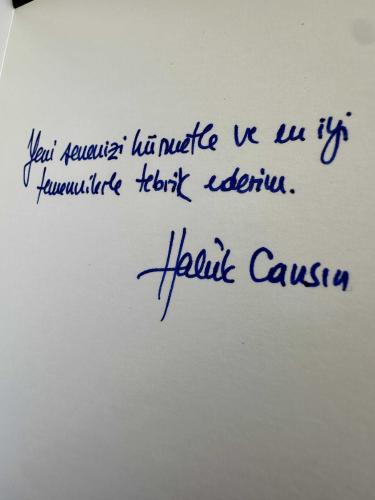 Yeni senenizi hürmetle ve en iyi
temennilerle tebrik ederim.
Halûk Cansın